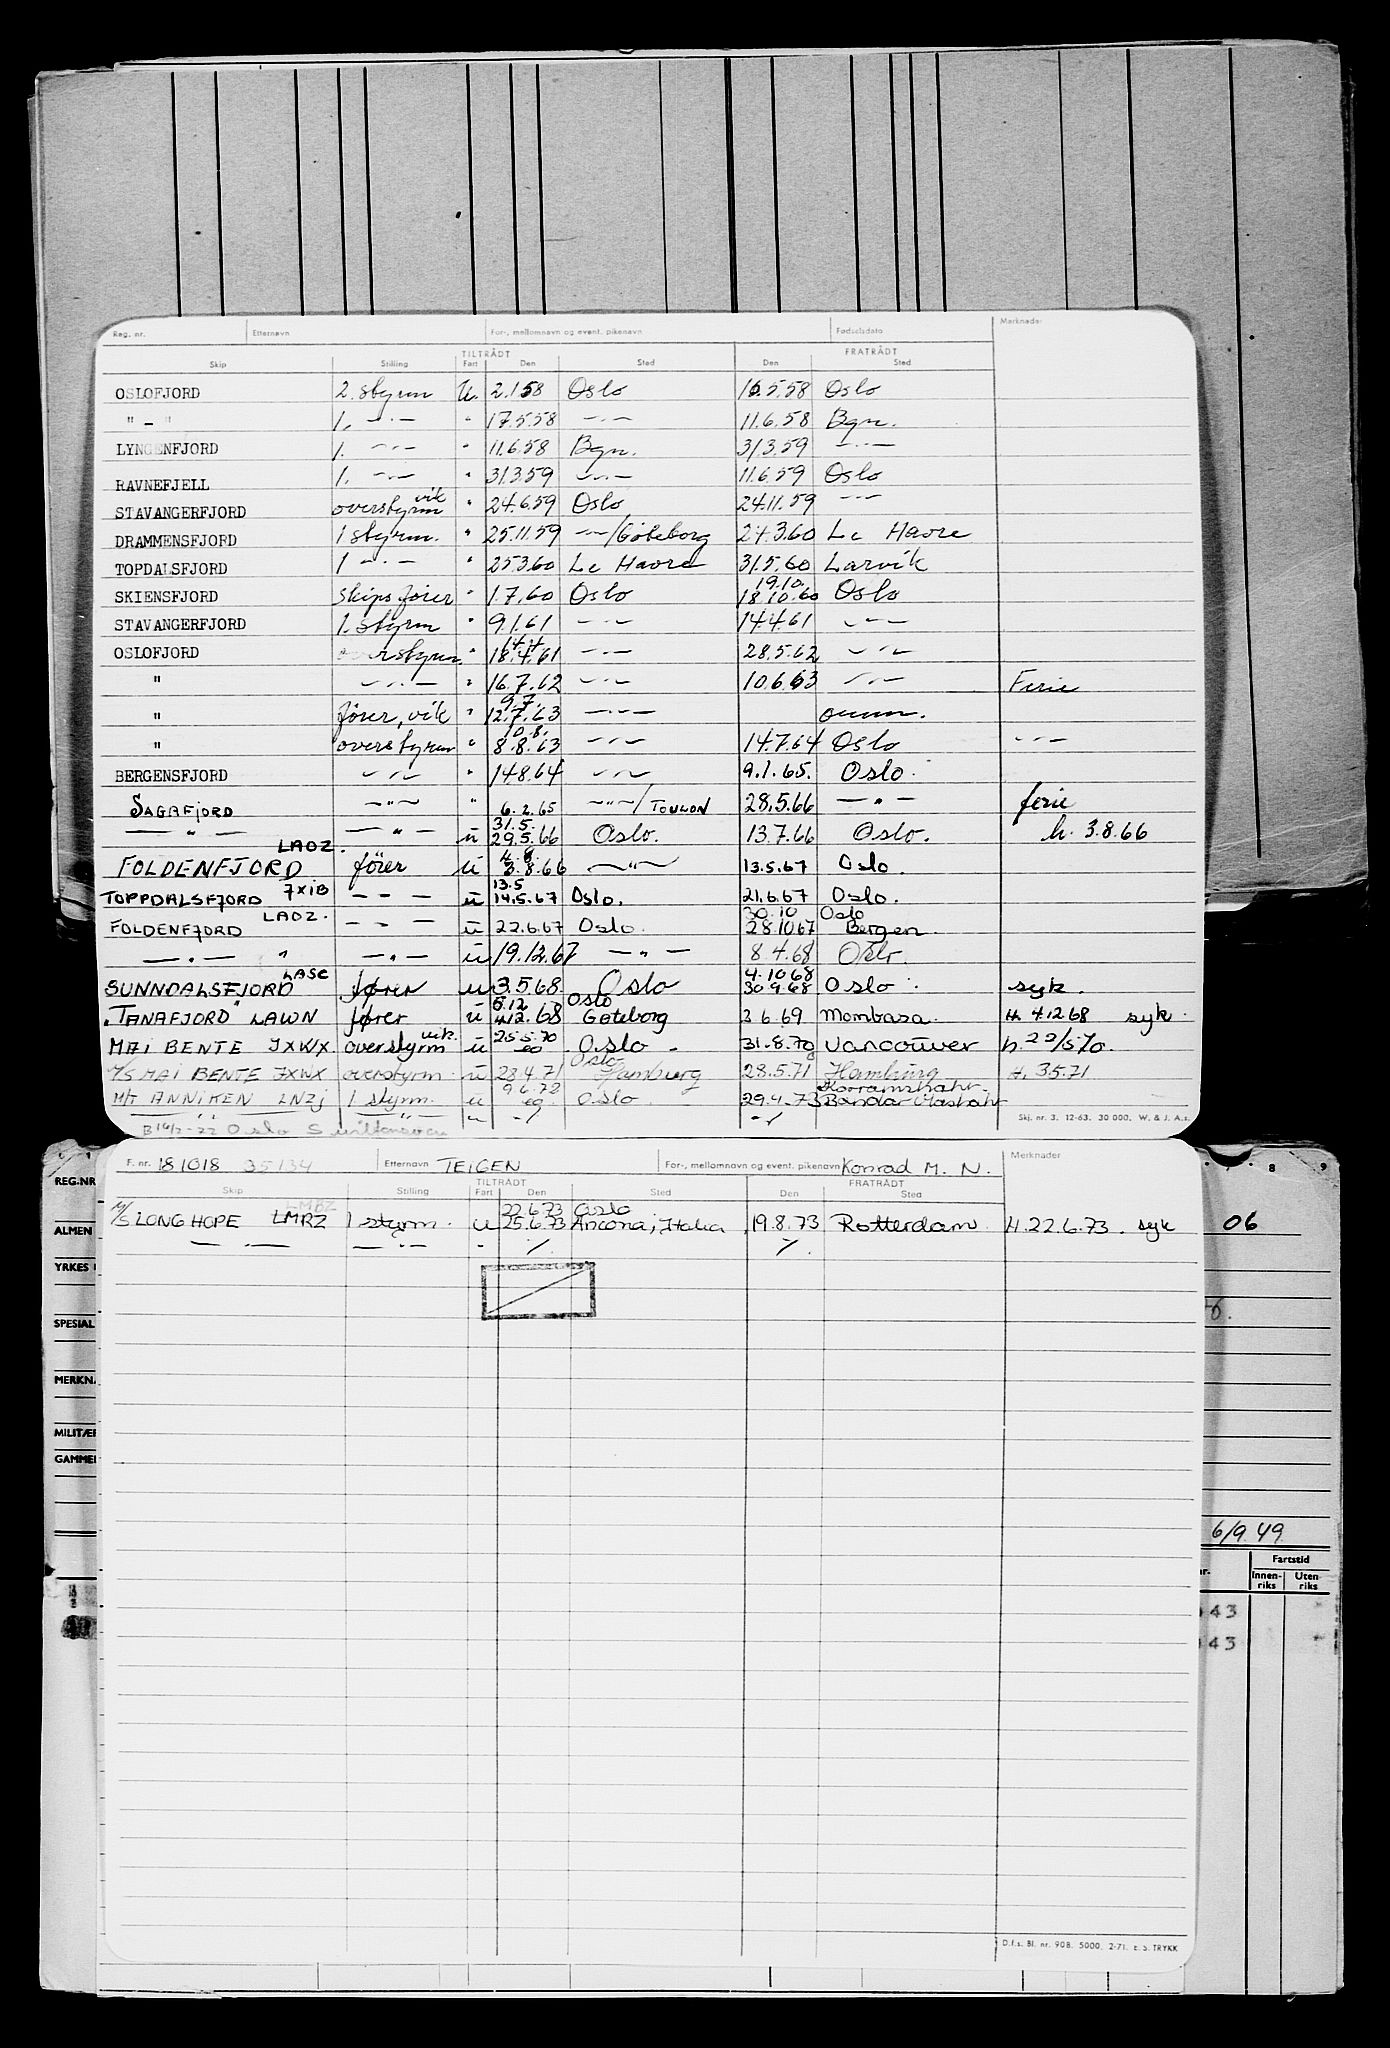 Reg. nr. Etternavn For-, mellomnavn og event. pikenavn Fødselsdato Merknader
TILTRÅDT FRATRÅDT
Skip Stilling Fart Den Sted Den Sted
OSLOFJORD 2. styrm U. 2.1.58 Oslo 16.5.58 Oslo
" - " 1. -"- " 17.5.58 -"- 11.6.58 Bgn.
LYNGENFJORD 1. -"- " 11.6.58 Bgn. 31.3.59 -"-
RAVNEFJELL 1. -"- " 31.3.59 -"- 11.6.59 Oslo
vik
STAVANGERFJORD overstyrm " 24.6.59 Oslo 24.11.59 -"-
DRAMMENSFJORD 1 styrm. " 25.11.59 -"-/Göteborg 24.3.60 Le Havre
TOPDALSFJORD 1 -"- " 25.3.60 Le Havre 31.5.60 Larvik
19.10.
SKIENSFJORD skipsfører " 1.7.60 Oslo 18.10.60 Oslo
STAVANGERFJORD 1. styrm " 9.1.61 -"- 14.4.61 -"-
14.4
OSLOFJORD overstyrm " 18.4.61 -"- 28.5.62 -"-
" -"- " 16.7.62 -"- 10.6.63 -"- Ferie
9.7.
" fører, vik " 12.7.63 -"- omm.
10.8.
" overstyrm " 8.8.63 -"- 14.7.64 Oslo -"-
BERGENSFJORD -"- " 14.8.64 -"- 9.1.65. Oslo.
SAGAFJORD -"- " 6.2.65 -"-/TOULON 28.5.66 -"- ferie
31.5.
-"- -"- u 29.5.66 Oslo. 13.7.66 Oslo. h. 3.8.66
LAOZ. 4.8.
FOLDENFJORD fører u 3.8.66 -"- 13.5.67 Oslo.
JXIB 13.5
TOPPDALSFJORD - " - u 14.5.67 Oslo. 21.6.67 Oslo.
LAOZ. 30.10 Oslo
FOLDENFJORD - " - u 22.6.67 Oslo. 28.10.67 Bergen.
-"- " -"- u 19.12.67 -"- 8.4.68 Oslo.
LASC 4.10.68
SUNNDALSFJORD fører u 3.5.68. Oslo 30.9.68 Oslo. syk.
5.12 Oslo
"TANAFJORD" LAWN fører u 4.12.68 Göteborg 3.6.69 Mombasa. H. 4.12.68 syk.
vik. 25.5.70
MAI BENTE JXWX. overstyrm u Oslo. 31.8.70 Vancouver h. 22/5 70.
Oslo
M/S MAI BENTE JXWX overstyrm. u 28.4.71 Hamburg 28.5.71 Hamburg H. 3.5.71
9.6.72 Khorramshahr
M/T ANNIKEN LNZJ 1 styrm. u Oslo. 29.4.73 Bandar Mashahr
-"- -"- " -/ -/ Skj. nr. 3. 12-63. 30 000. W. & J. A.s.
Oslo
F. nr. 181018 35134 Etternavn TEIGEN For-, mellomnavn og event. pikenavn Konrad M. N. Merknader
TILTRÅDT FRATRÅDT
Skip Stilling Fart Den Sted Den Sted
22.6.73 Oslo
M/S LONG HOPE LMRZ 1 styrm. u 25.6.73 Ancona, Italia 19.8.73 Rotterdam. H. 22.6.73. syk
-"- -"- " ./. ./.
D.f.s. Bl. nr. 90B. 5000. 2-71. E. S. TRYKK
REG.NR
ALMEN
YRKES
SPESIAL
MERKNA
MILITÆR
GAMMEL
7 8 9
06
6/9 49
Fartstid
Innen-riks Uten-riks
43
43